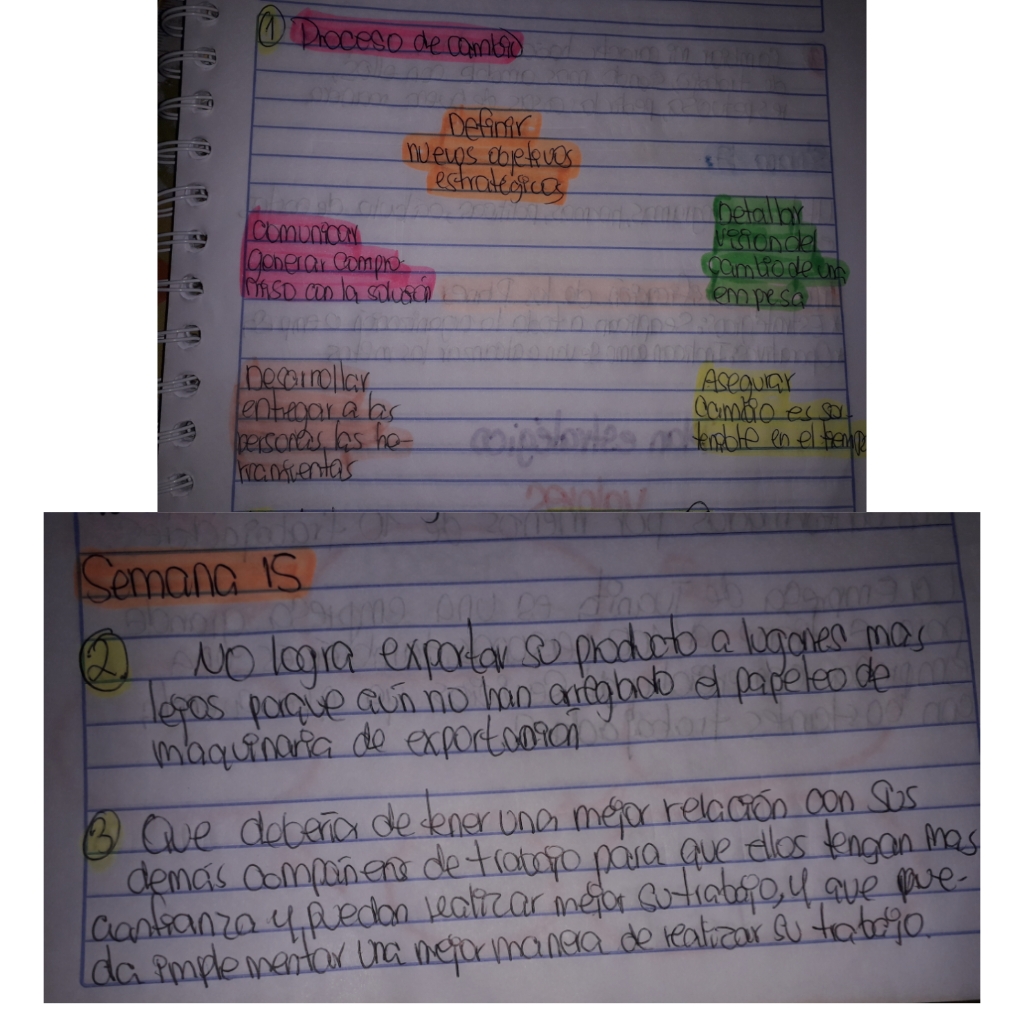 1 Proceso de cambio
Definir
nuevos objetivos
estratégicos
Comunicar
generar compro-
miso con la solución
Detallar
vision del
cambio de una
empesa
Desarrollar
entregar a las
personas las he-
rramientas
Asegurar
cambio es sos
tenible en el tiempo
Semana 15
2. No logra exportar su producto a lugares mas
lejos porque aún no han arreglado el papeleo de
maquinaria de exportación
3 Que debería de tener una mejor relación con sus
demás compañeros de trabajo para que ellos tengan mas
confianza y puedan realizar mejor su trabajo, y que pue-
da implementar una mejor manera de realizar su trabajo.